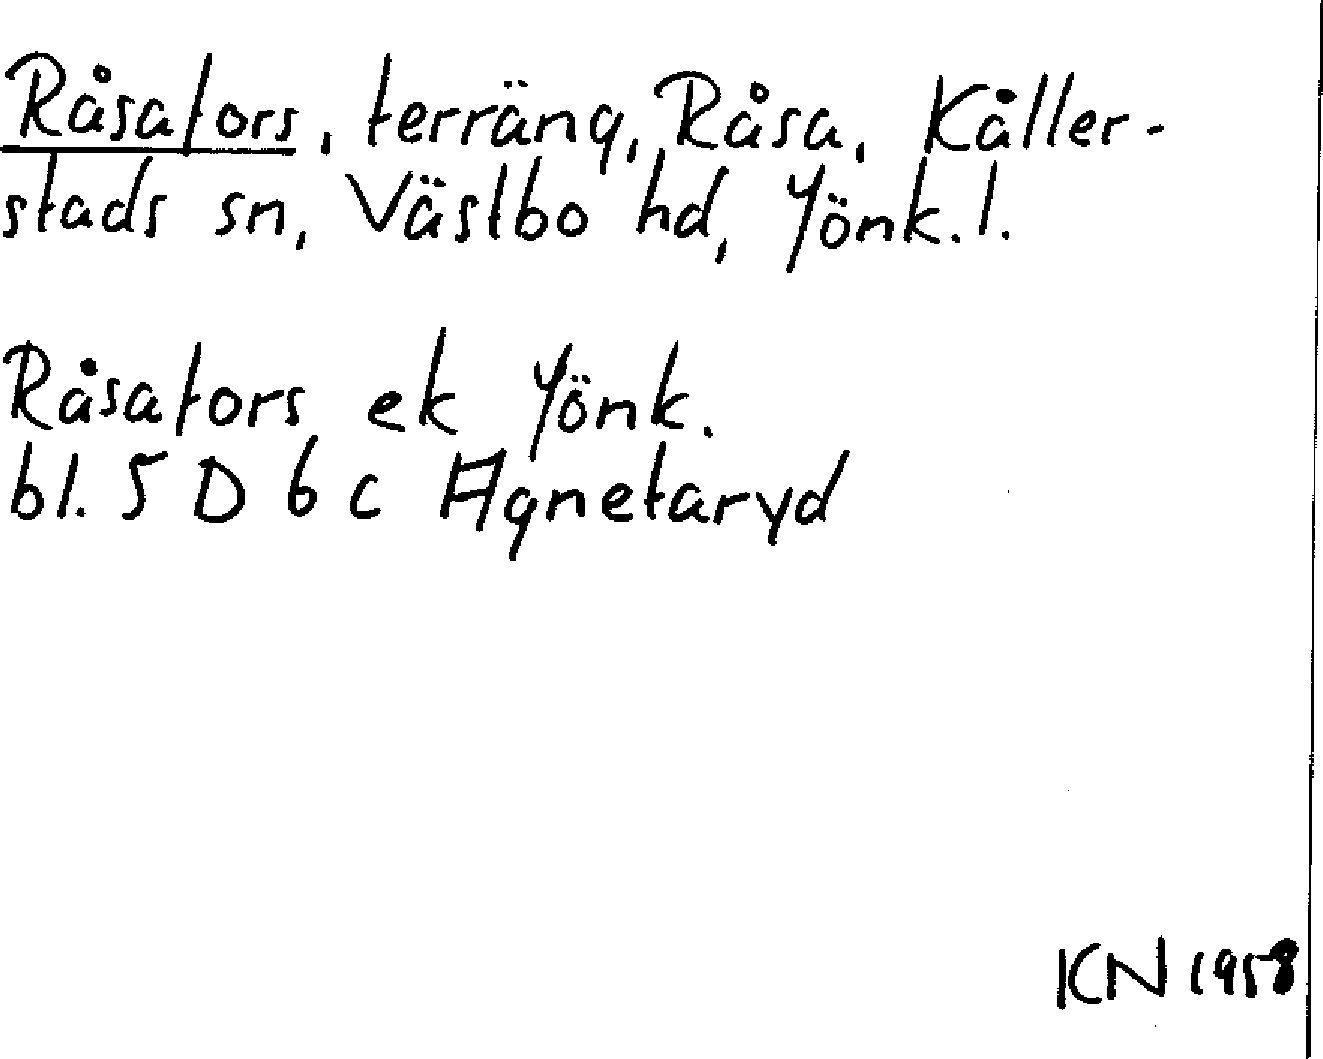 Råsators, terräng, Råsa, Kåller-
stads sn, Västbo hd, Jönk.l.
Råsators ek Jönk.
bl. 5 D 6 c Agnetaryd
KN 1958